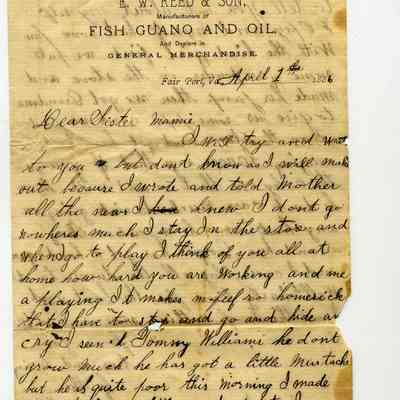 E. W. REED & SON,
Manufacturers of
FISH GUANO AND OIL
And Dealers in
GENERAL MERCHANDISE.
Fair Port, Va., April 1st 6
Dear Sister Mamie
I will try and
to you but dont know as I will make
out because I wrote and told Mother
all the news I knew I dont go
nowheres much I stay In the store and
when I go to play I think of you all at
home how hard you are working and me
a playing It makes me feel so homesick
that I have to stop and go and hide an
cry I seen Tommy Williams he dont
grow much he has got a little Mustache
but he is quite poor this morning I made